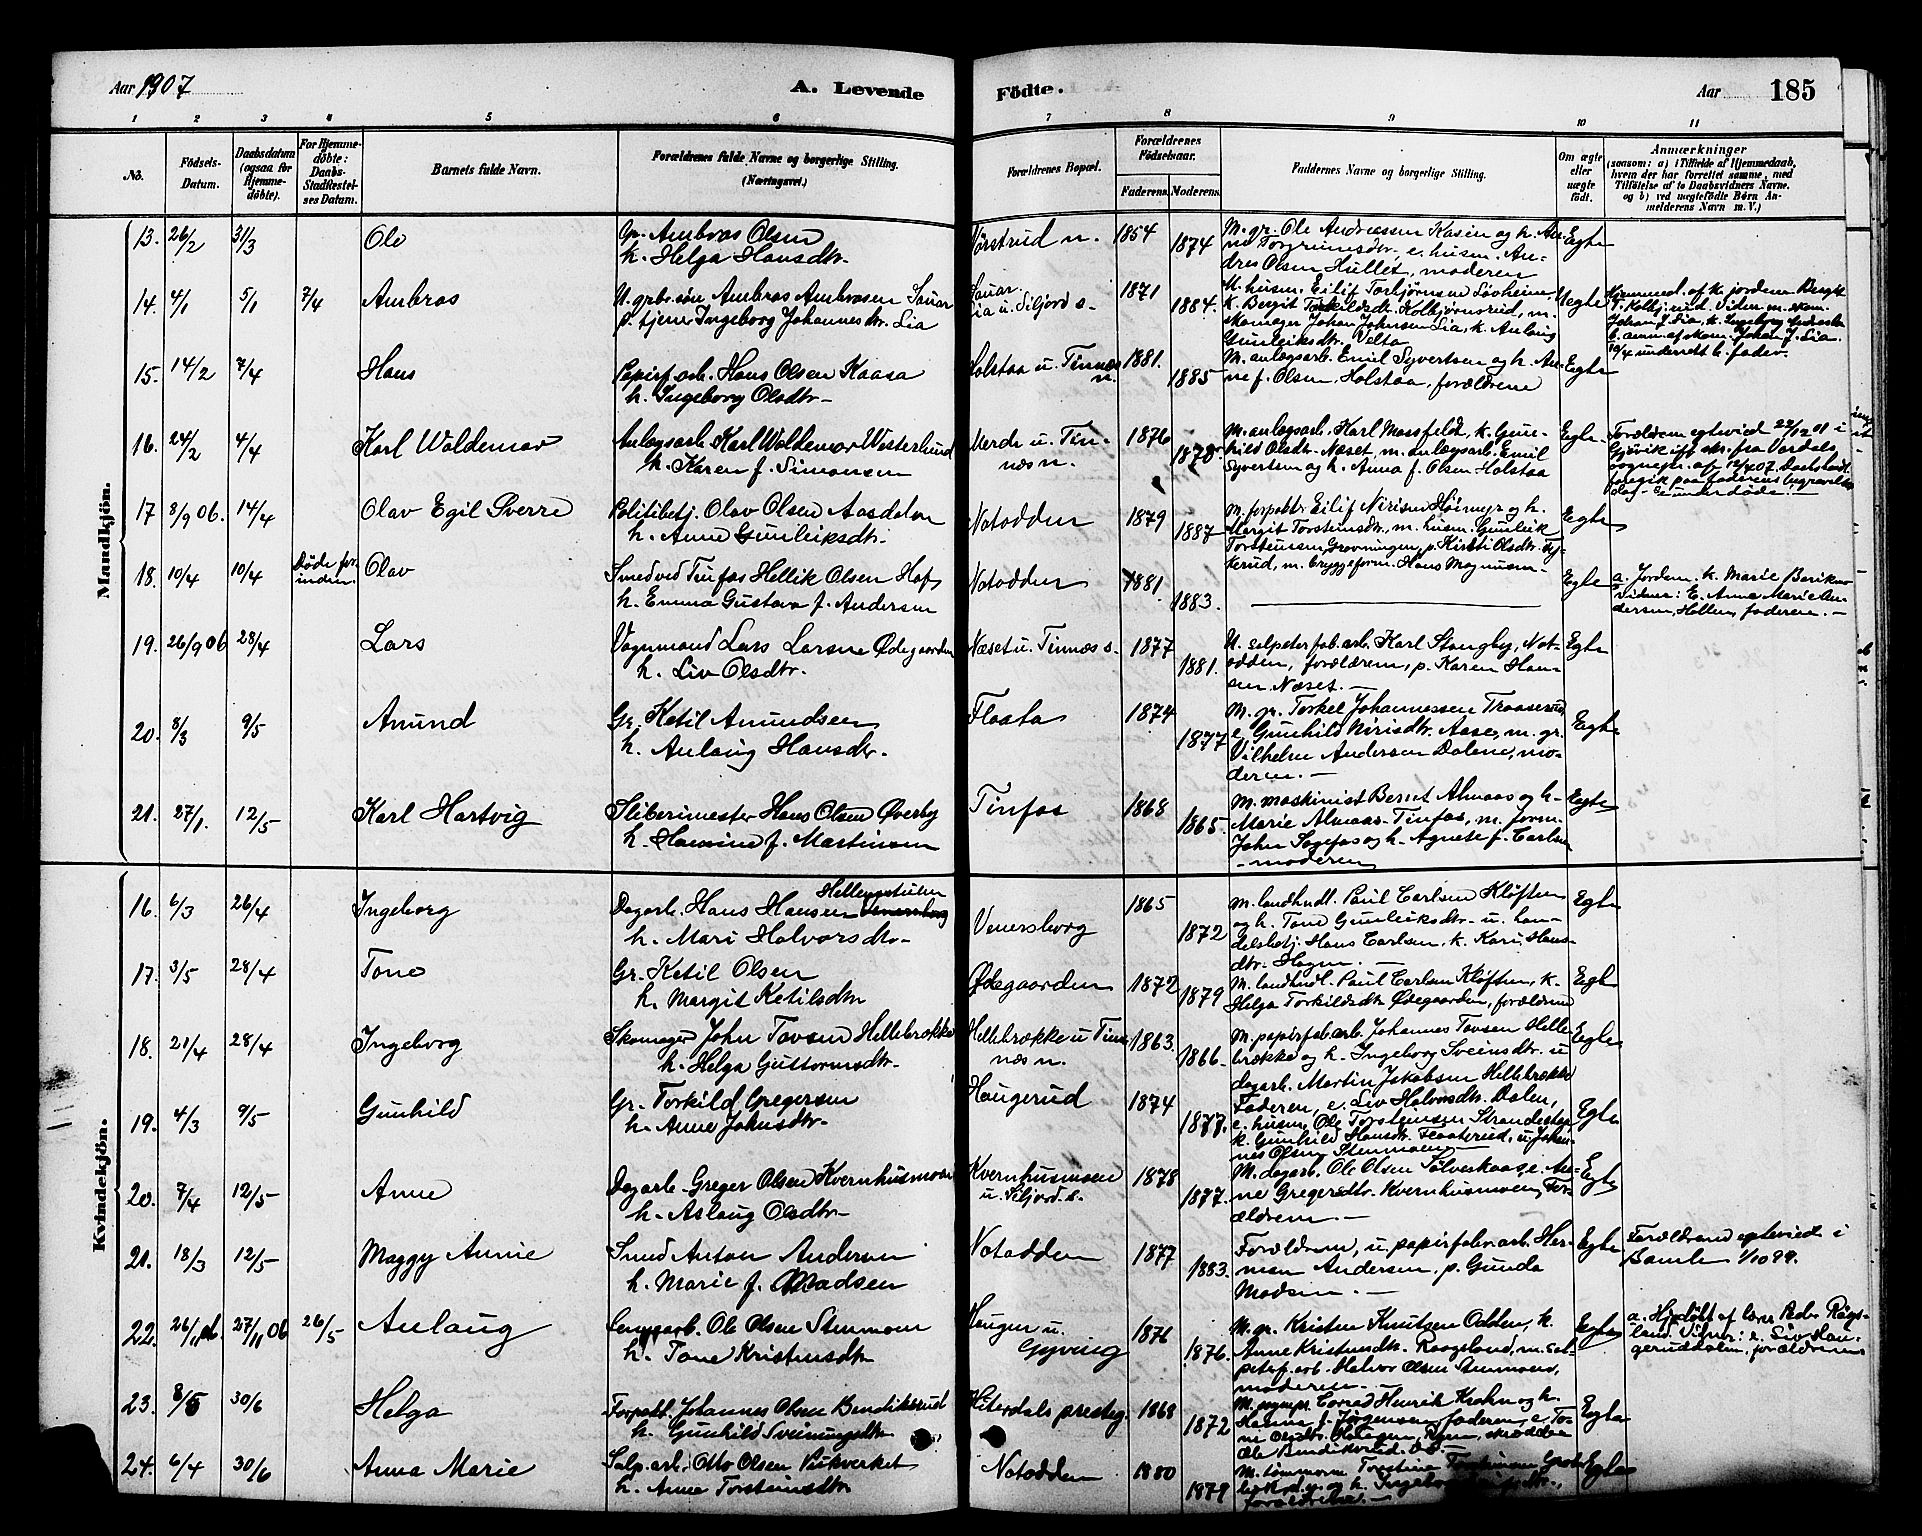 Aar 1907
A. Levende
Födte.
Aar
185
1 2 3 4 5 6 7 8 9 10 11
No.
Födsels-
Datum.
Daabsdatum
(ogsaa for
Hjemme-
döbte).
For Hjemme-
döbte:
Daabs-
Stadfæstel-
ses Datum.
Barnets fulde Navn.
Forældrenes fulde Navne og borgerlige Stilling.
(Næringsvei.)
Forældrenes Bopæl.
Forældrenes
Födselsaar.
Faderens. Moderens.
Faddernes Navne og borgerlige Stilling.
Om ægte
eller
uægte
födt.
Anmærkninger
(saasom: a) i Tilfælde af Hjemmedaab,
hvem der har forrettet samme, med
Tilföielse af to Daabsvidners Navne.
og b) ved uægtefödte Börn An-
melderens Navn m. V.)
Mandkjön.
13. 26/2 31/3 Ole
Gr. Ambros Olsen
h. Helga Hansdtr.
1854
1874
M. gr. Ole Andreassen Kasin og h. An-
ne Torgrimsdtr., e. husm. An-
dres Olsen Hullet, moderen
Egte
14. 4/1 5/1 7/4 Ambros
U. grbr. søn Ambros Ambrosen Sauar
p. tjener Ingeborg Johannesdtr. Lia
Sauar
Lia u. Siljord s.
1871
1884.
M. husm. Eilif Torbjørnsen Løvheim,
k. Bergit Torkildsdr. Kolbjørnsrud, m.
skomager Johan Johnsen Lia, k. Aulaug
Gunleiksdtr. Velta
Uegte
Hjemmed. af k. jordem. Bergit
10/4 underrett b. fader.
15. 14/2 7/4 Hans
Papirf. arb. Hans Olsen Kaasa
h. Ingeborg Olsdtr.
Holstaa u. Tinnes
n.
1881.
1885
M. anlægsarb. Emil Syvertsen og h. An-
ne f. Olsen, Holstaa, forældrene
Egte
16. 24/2 4/4 Karl Waldemar
Anlægsarb. Karl Waldemar Westerlund
h. Karen f. Simonsen
Merde u. Tin-
næs n.
1876
1878.
M. anlægsarb. Karl Mossfeldt, k. Gun-
hild Olsdtr. Næset, m. anlægsarb. Emil
Syvertsen og h. Anna f. Olsen Holstaa
Egte
Forældrene egteviet 22/12 01 i
Gjøvik ifl. skr. fra Vardals
sognepr. af 12/4 07. Daabshandl.
foregik paa faderens begravelses
dag
17 8/9 06. 14/4 Olav Egil Sverre
Politibetj. Olav Olsen Aasdalen
h. Anne Gunleiksdtr.
Notodden
1879
1887
M. forpakter Eilif Nirisen Høimyr og h.
Margit Torsteinsdtr., m. husm. Gunleik
Torsteinsen Grovningen, p. Kirsti Olsdtr.
m. bryggeform. Hans Magnussen
Egte
18. 10/4 10/4 Døde for-
inden. Olav
Smed ved Tinfos Hellik Olsen
h. Emma Gustava f. Andersen
Notodden
1881
1883.
Egte
a. Jordem. k. Marie
vidner: E. Anne Marie An-
dersen, Hollen, faderen.
19. 26/9 06 28/4 Lars
Vognmand Lars Larsen Ødegaarden
h. Liv Olsdtr.
Næset u. Tinnæs s.
1877
1881.
U. salpeterfab. arb. Karl Stangby, Not-
odden, forældrene, p. Karen Han-
sen Næset.
Egte
20. 8/3 9/5 Amund
Gr. Ketil Amundsen
h. Aulaug Hansdtr.
Flaata
1874
1877
M. gr. Torkel Johannessen Traaserud
e. Gunhild Nirisdtr. Aase, m. gr.
Vilhelm Andersen Dalene, mo-
deren.
Egte
21. 27/1. 12/5 Karl Hartvig
Sliberimester Hans Olsen Øverby
h. Hansine f. Martinsen
Tinfos
1868
1865.
M. maskinist Bernt Almaas og h.
Marie Almaas Tinfos, m. form.
John Sagefos og h. Agnete f. Carlsen
moderen
Egte
Kvindekjön.
16. 6/3 26/4 Ingeborg
Dagarb. Hans Hansen
h. Mari Halvorsdtr.
Venersborg
1865
1872
M. landhndl. Paul Carlsen Kløften
og h. Tone Gunleiksdtr. u. han-
delsbetj. Hans Carlsen, k. Kari Hans-
dtr. Hagen.
Egte
17. 3/5 28/4 Tone
Gr. Ketil Olsen
h. Margit Ketilsdtr.
Ødegaarden
1872
1879
M. landhndl. Paul Carlsen Kløften, k.
Helga Torkildsdtr. Ødegaarden, forældrene
Egte
18. 21/4 28/4 Ingeborg
Skomager John Tovsen Hellebrække
h. Helga Guttormsdtr.
Hellebrække u Tin-
næs n.
1863.
1866.
M. papirfab. arb. Johannes Tovsen Helle-
brække og h. Ingeborg Sveinsdtr. u
dagarb. Martin Jakobsen Hellebrække
Egte
19. 4/3 9/5 Gunhild
Gr. Torkild Gregersen
h. Anne Johnsdtr.
Haugerud
1874
1877.
Faderen, e. Liv Halvorsdtr. Dalen,
e. husm. Ole Torsteinsen
k. Gunhild Hansdtr. Flaaterud, u. Johan-
nes Olsen Stenmoen
Egte
20. 7/4 12/5 Anne
Dagarb. Greger Olsen Kvernhusmoen
h. Aslaug Olsdtr.
Kvernhusmoen
u. Siljord s.
1878
1877.
M. dagarb. Ole Olsen Sølverkaas, e. An-
ne Gregersdtr. Kvernhusmoen, For-
ældrene.
Egte
21. 18/3 12/5 Maggy Annie
Smed Anton Andersen
h. Marie f. Madsen
Notodden
1877
1883.
Forældrene, u. papirfabr. arb. Her-
man Andersen, p. Gunda
Madsen.
Egte
Forældrene egteviet i
Bamle 1/10 99.
22. 26/11 06. 27/11 06 26/5 Aulaug
Ole Olsen Stenmoen
h. Tone Kristensdtr
Haugen u.
Gyving
1876
1876.
M. gr. Kristen Knutsen Odden, k.
Anne Kristensdtr. Raageland, m. sal-
peterf. arb. Halvor Olsen Stenmoen,
moderen.
Egte
a. Hjdøbt af
Vidner: e. Liv Hau-
gerud forældrene
23. 8/5 30/6 Helga
Forpakt. Johannes Olsen Bendiksrud
h. Gunhild Sveinungsdtr.
Hiterdals presteg.
1868
1872
M. Conrad Henrik Krohn og h.
Hanna f. Jørgensen, faderen, e. To-
Ole Bendiksrud.
Egte
24. 6/4 30/6 Anna Marie
Salp. arb. Otto Olsen
h. Anne Torsteinsdtr
Notodden
1880
1879
M. tømmerm. Torstein
og h.
forældrene.
Egte